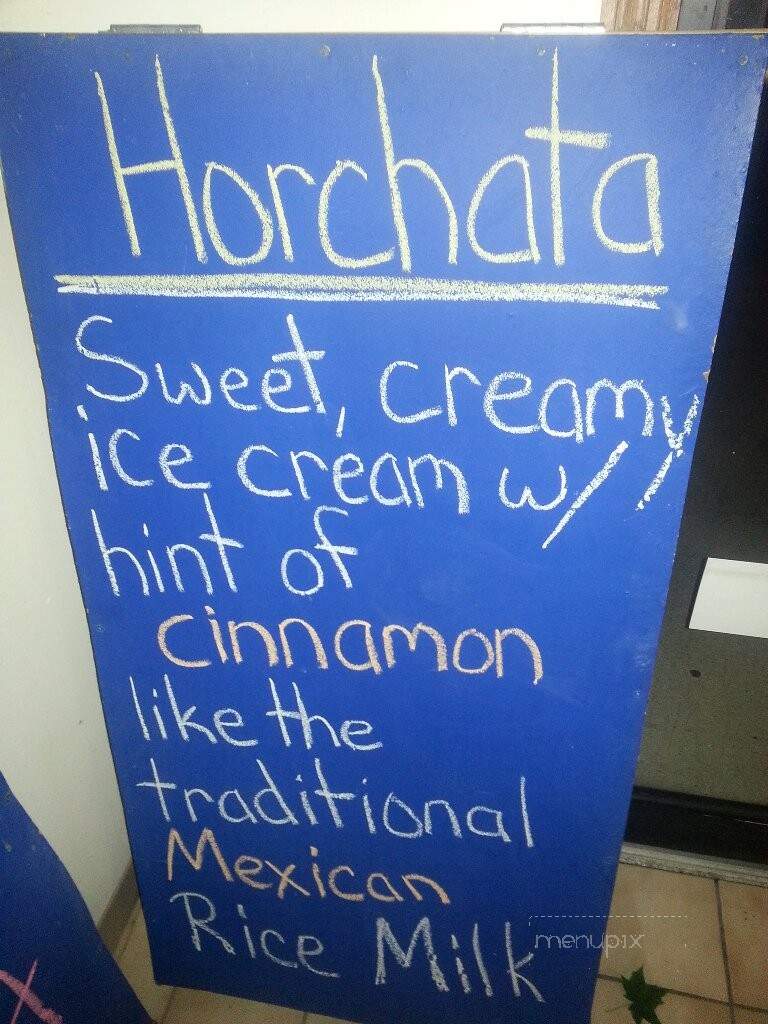 Horchata
Sweet, creamy
ice cream w/
hint of
cinnamon
like the
traditional
Mexican
Rice Milk
menupix